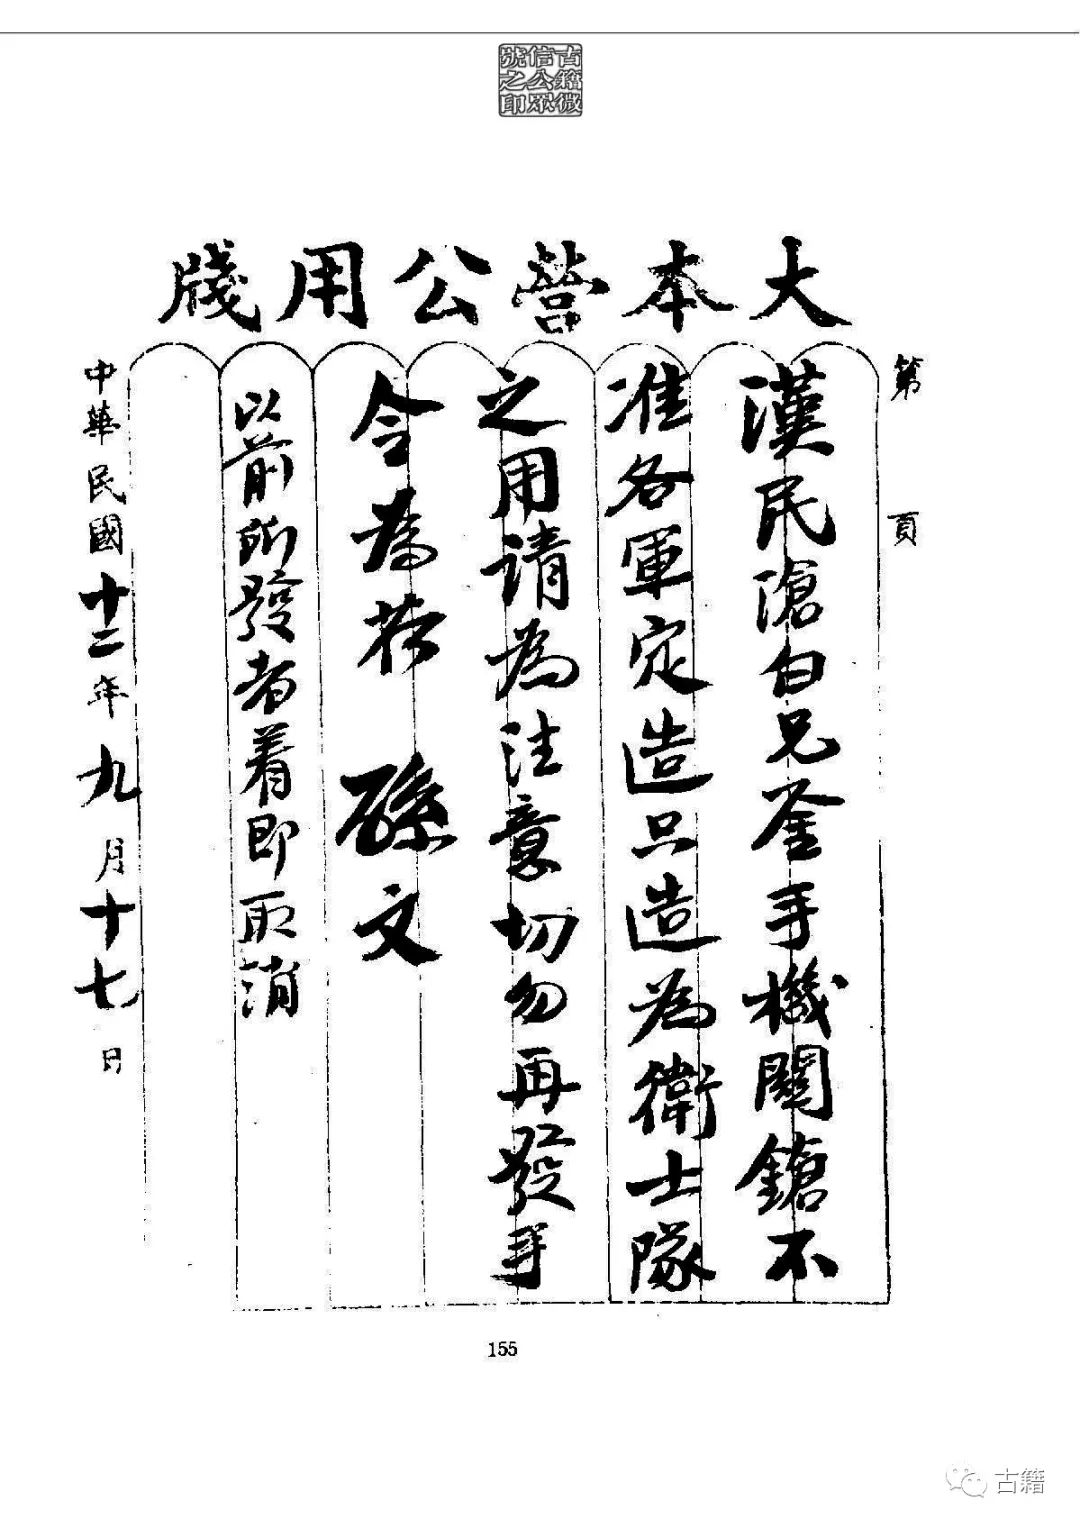 古籍微
信公眾
號之印
大本營公用牋
第 頁
漢民滄白兄鉴手機關鎗不
准各軍定造只造為衛士隊
之用請為注意切勿再發手
令為荷 孫文
以前所發者着即取消
中華民國十二年九月十七日
155
古籍